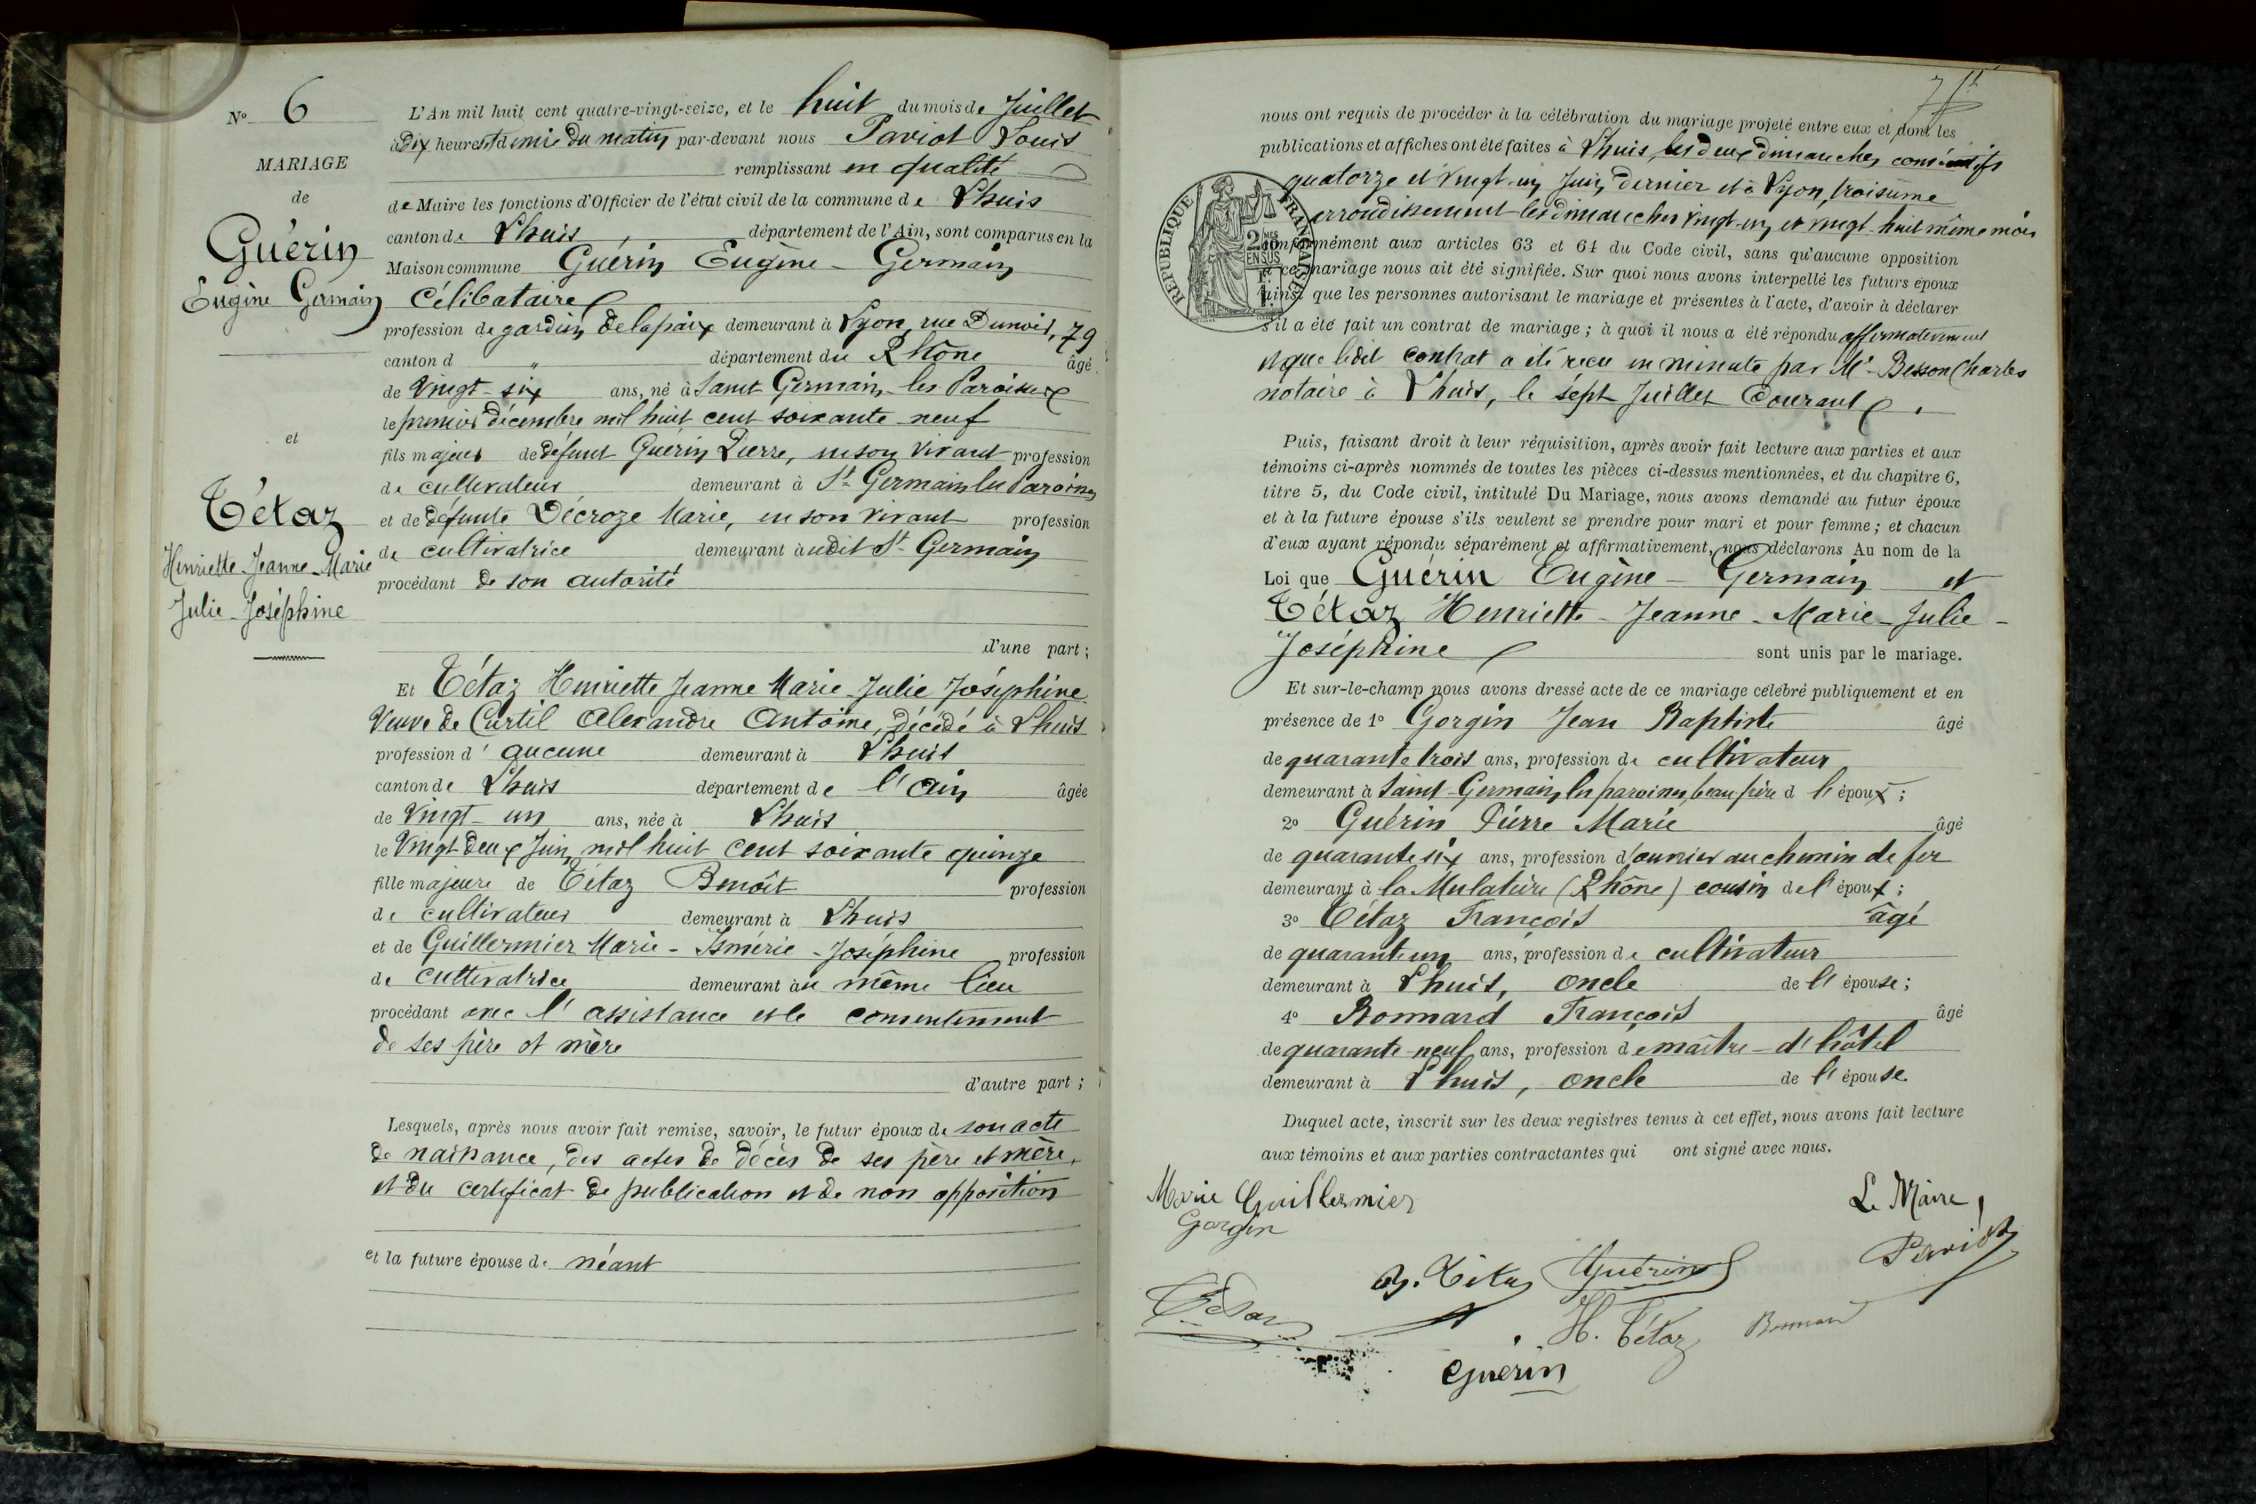 N° 6
MARIAGE
de
Guérin
Eugène Germain
et
Tétaz
Henriette Jeanne Marie
Julie Joséphine
L'An mil huit cent quatre-vingt-seize, et le huit du mois de Juillet
à Dix heures et demie du matin par-devant nous Paviot Louis
remplissant en qualité
de Maire les fonctions d'Officier de l'état civil de la commune de Lhuis
canton de Lhuis, département de l'Ain, sont comparus en la
Maison commune Guérin Eugène - Germain
Célibataire
profession de gardien de la paix demeurant à Lyon, rue Dunoir, 79
canton d " département du Rhône âgé
de Vingt-six ans, né à Saint Germain-les Paroisses
le premier décembre mil huit cent soixante neuf
fils majeur de défunt Guérin Pierre, en son vivant profession
de cultivateur demeurant à St Germain les Paroisses
et de défunte Décroze Marie, en son vivant profession
de cultivatrice demeurant audit St Germain
procédant de son autorité
d'une part;
Et Tétaz Henriette Jeanne Marie Julie Joséphine
Veuve de Curtil Alexandre Antoine, décédé à Lhuis
profession d'aucune demeurant à Lhuis
canton de Lhuis département de l'Ain âgée
de Vingt-un ans, née à Lhuis
le Vingt Deux Juin mil huit cent soixante quinze
fille majeure de Tétaz Benoît profession
de cultivateur demeurant à Lhuis
et de Guillermier Marie-Ismérie-Joséphine profession
de cultivatrice demeurant au même lieu
procédant avec l'assistance et le consentement
de ses père et mère
d'autre part;
Lesquels, après nous avoir fait remise, savoir, le futur époux de son acte
de naissance, des actes de décès de ses père et mère,
et du certificat de publication et de non opposition
et la future épouse de néant
nous ont requis de procéder à la célébration du mariage projeté entre eux et dont les
publications et affiches ont été faites à Lhuis les deux dimanches consécutifs
quatorze et vingt-un Juin dernier et à Lyon, troisième
arrondissement les dimanches vingt-un et vingt-huit même mois
RÉPUBLIQUE FRANÇAISE
conformément aux articles 63 et 64 du Code civil, sans qu'aucune opposition
à ce mariage nous ait été signifiée. Sur quoi nous avons interpellé les futurs époux
ainsi que les personnes autorisant le mariage et présentes à l'acte, d'avoir à déclarer
s'il a été fait un contrat de mariage; à quoi il nous a été répondu affirmativement
et que ledit contrat a été reçu en minute par Me Besson Charles
notaire à Lhuis, le sept Juillet Courant.
Puis, faisant droit à leur réquisition, après avoir fait lecture aux parties et aux
témoins ci-après nommés de toutes les pièces ci-dessus mentionnées, et du chapitre 6,
titre 5, du Code civil, intitulé Du Mariage, nous avons demandé au futur époux
et à la future épouse s'ils veulent se prendre pour mari et pour femme; et chacun
d'eux ayant répondu séparément et affirmativement, nous déclarons Au nom de la
Loi que Guérin Eugène - Germain et
Tétaz Henriette - Jeanne - Marie - Julie -
Joséphine sont unis par le mariage.
Et sur-le-champ nous avons dressé acte de ce mariage célébré publiquement et en
présence de 1° Gorgin Jean Baptiste âgé
de quarante trois ans, profession de cultivateur
demeurant à Saint-Germain les paroisses, beau frère d l'époux;
2° Guérin Pierre Marie âgé
de quarante six ans, profession d'ouvrier au chemin de fer
demeurant à la Mulatière (Rhône) cousin de l'époux;
3° Tétaz François âgé
de quarante un ans, profession de cultivateur
demeurant à Lhuis, oncle de l'épouse;
4° Bonnard François âgé
de quarante-neuf ans, profession de maître-d'hôtel
demeurant à Lhuis, oncle de l'épouse.
Duquel acte, inscrit sur les deux registres tenus à cet effet, nous avons fait lecture
aux témoins et aux parties contractantes qui ont signé avec nous.
Marie Guillermier
Le Maire,
Gorgin
Paviot
Guérin
H. Tétaz
Bonnard
Guérin